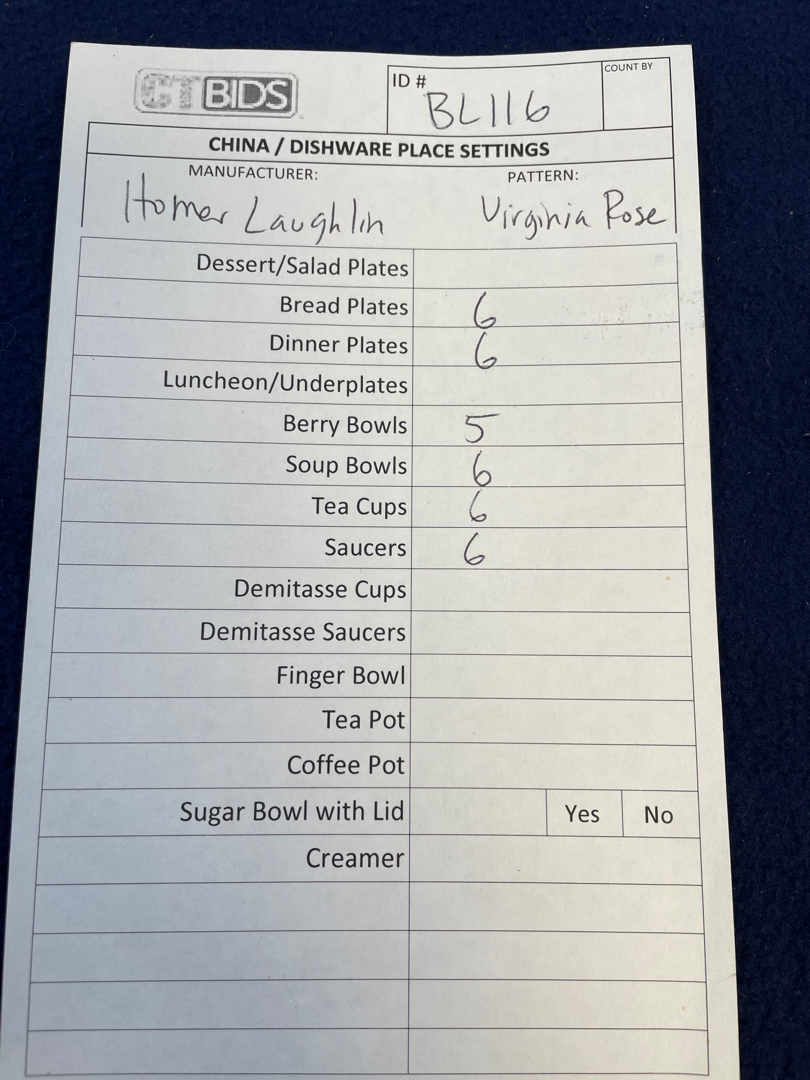 CTBIDS
ID #
BL116
COUNT BY
CHINA / DISHWARE PLACE SETTINGS
MANUFACTURER: PATTERN:
Homer Laughlin Virginia Rose
Dessert/Salad Plates
Bread Plates 6
Dinner Plates 6
Luncheon/Underplates
Berry Bowls 5
Soup Bowls 6
Tea Cups 6
Saucers 6
Demitasse Cups
Demitasse Saucers
Finger Bowl
Tea Pot
Coffee Pot
Sugar Bowl with Lid Yes No
Creamer